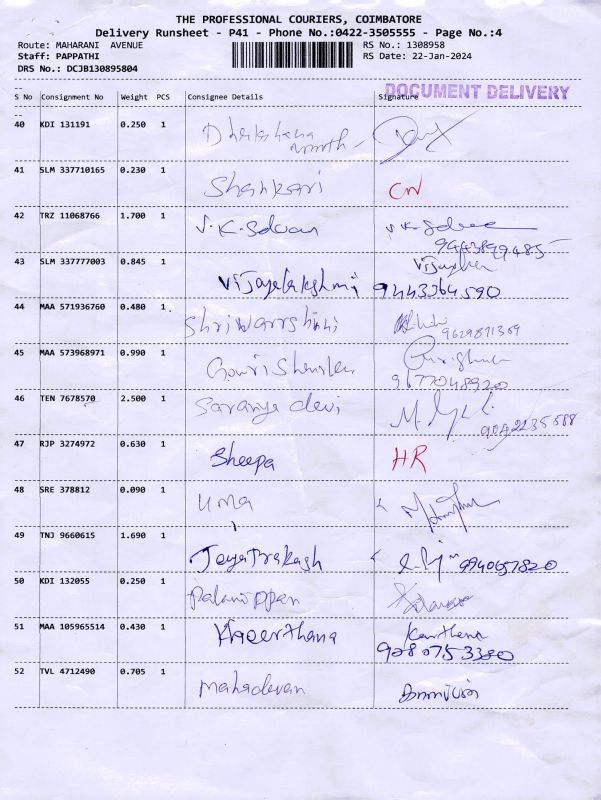 THE PROFESSIONAL COURIERS, COIMBATORE
Delivery Runsheet - P41 - Phone No.:0422-3505555 - Page No.:4
Route: MAHARANI AVENUE
RS No.: 1308958
Staff: PAPPATHI
RS Date: 22-Jan-2024
DRS No.: DCJB130895804
DOCUMENT DELIVERY
--
S No Consignment No Weight PCS Consignee Details Signature
--
40 KDI 131191 0.250 1
41 SLM 337710165 0.230 1 Shankari CN
42 TRZ 11068766 1.700 1 V.K. Selvan
9443899485
43 SLM 337777003 0.845 1 Vijayalakshmi 9443364590
44 MAA 571936760 0.480 1 Shriwarrshini
9629871369
45 MAA 573968971 0.990 1
9677048920
46 TEN 7678570 2.500 1 Saranya devi
47 RJP 3274972 0.630 1 Sheepa HR
48 SRE 378812 0.090 1 Uma
49 TNJ 9660615 1.690 1 JeyaPrakash
50 KDI 132055 0.250 1 Palaniappan
51 MAA 105965514 0.430 1 Kheerthana
52 TVL 4712490 0.705 1 Mahadevan